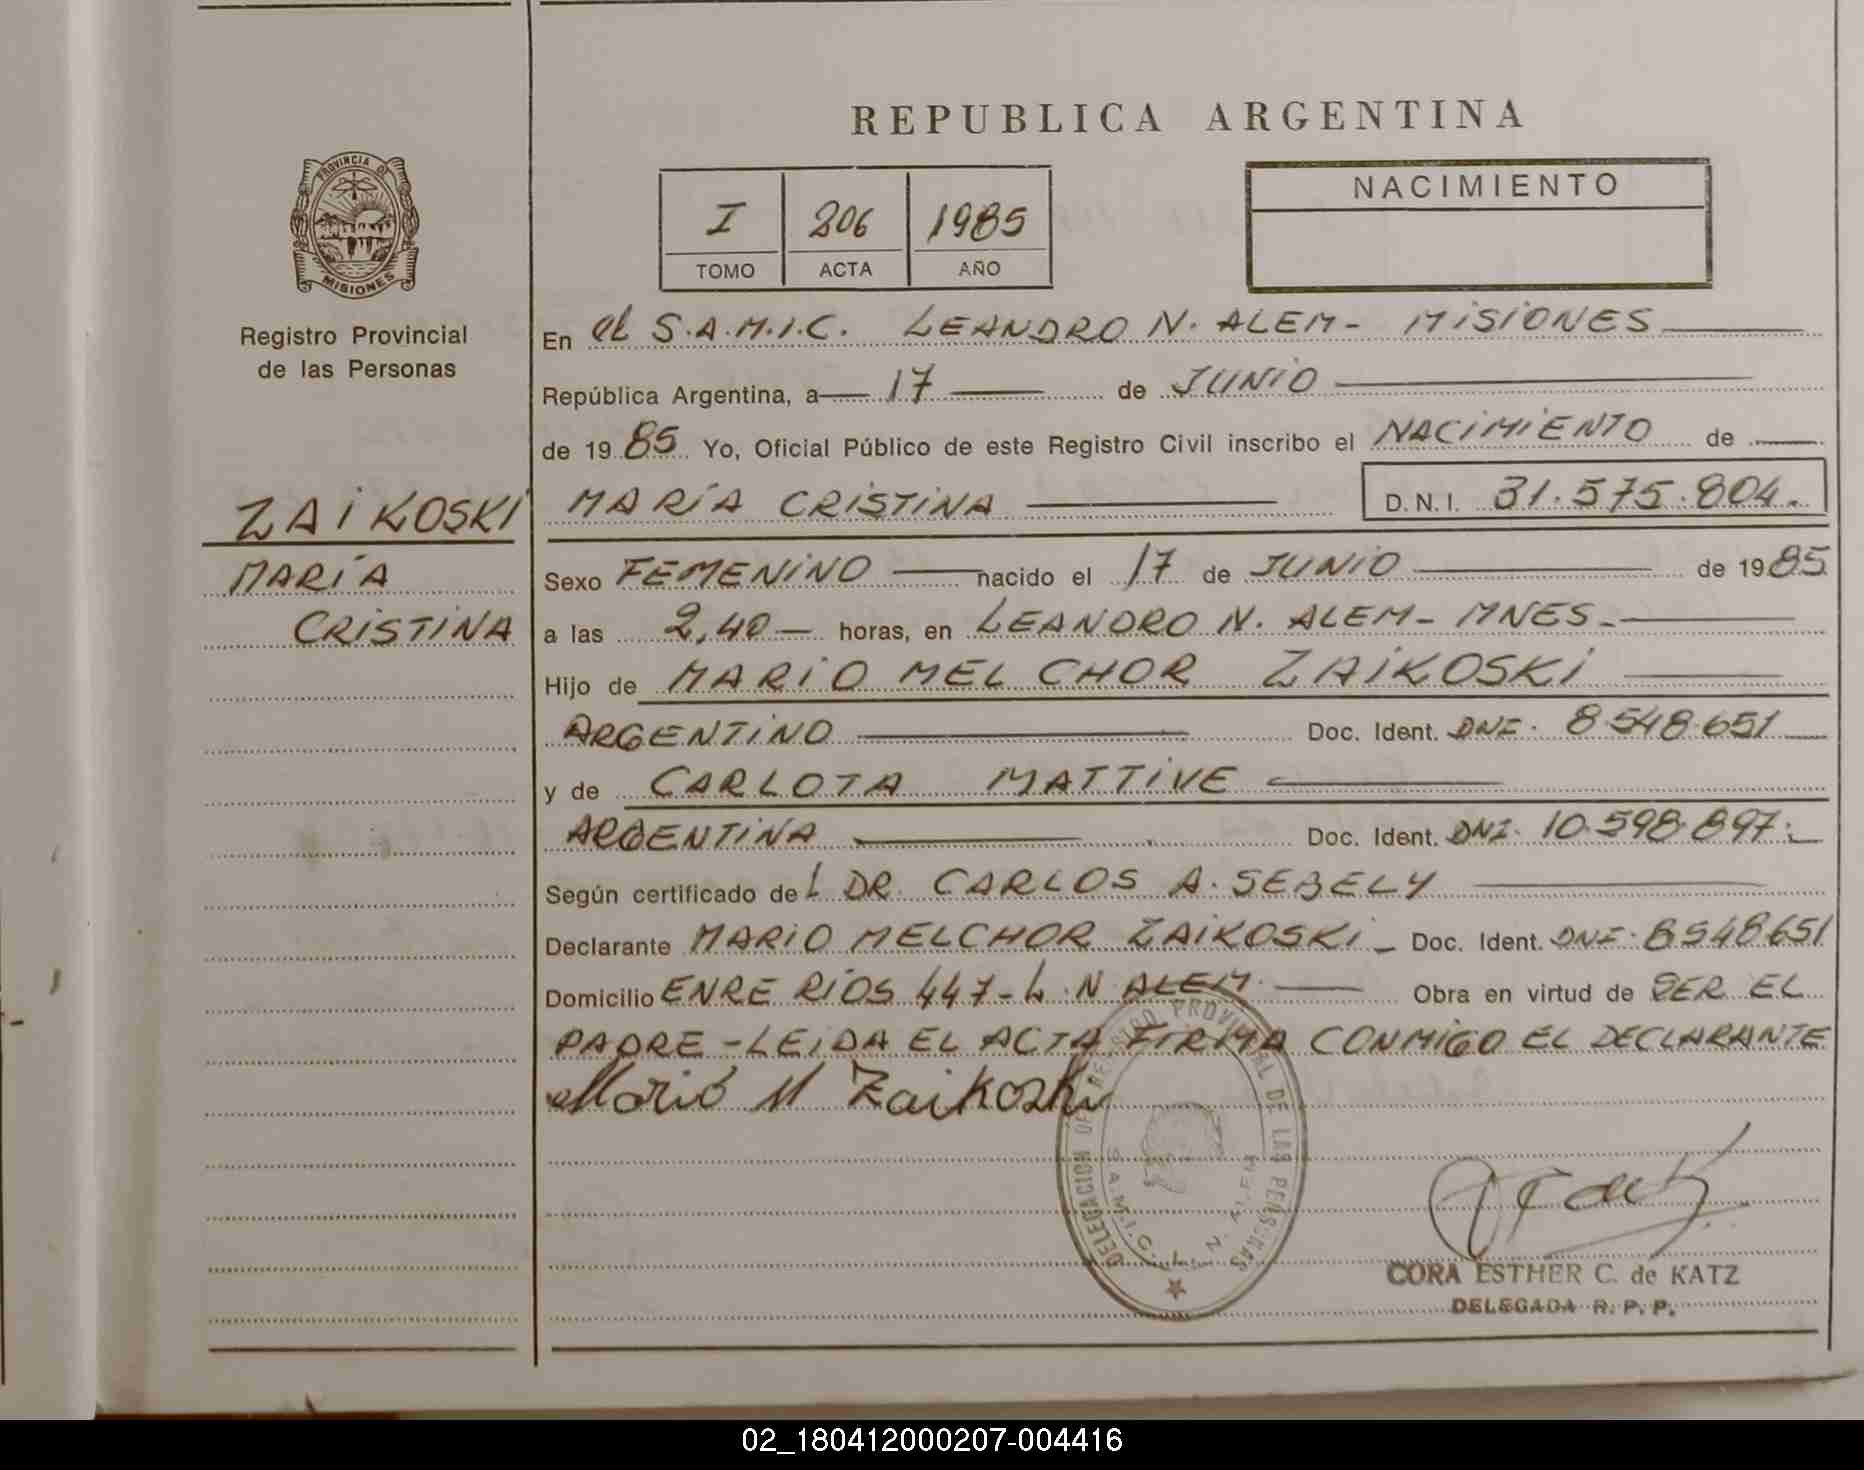 REPUBLICA ARGENTINA
PROVINCIA DE
MISIONES
Registro Provincial
de las Personas
I 206 1985
TOMO ACTA AÑO
NACIMIENTO
En el S.A.M.I.C. LEANDRO N. ALEM - MISIONES
República Argentina, a 17 de JUNIO
de 1985 Yo, Oficial Público de este Registro Civil inscribo el NACIMIENTO de
ZAIKOSKI
MARÍA
CRISTINA
MARÍA CRISTINA D.N.I. 31.575.804.
Sexo FEMENINO nacido el 17 de JUNIO de 1985
a las 2,40 horas, en LEANDRO N. ALEM - MNES.
Hijo de MARIO MELCHOR ZAIKOSKI
ARGENTINO Doc. Ident. DNI. 8.548.651
y de CARLOTA MATTIVE
ARGENTINA Doc. Ident. DNI. 10.598.897.
Según certificado del DR. CARLOS A. SEBELY
Declarante MARIO MELCHOR ZAIKOSKI - Doc. Ident. DNI. 8548651
Domicilio ENRE RÍOS 447 - L.N ALEM. Obra en virtud de SER EL
PADRE - LEIDA EL ACTA FIRMA CONMIGO EL DECLARANTE
Mario M Zaikoski
DELEGACION DEL REGISTRO PROVINCIAL DE LAS PERSONAS
S.A.M.I.C. L. N. ALEM
CORA ESTHER C. de KATZ
DELEGADA R. P. P.
02_180412000207-004416